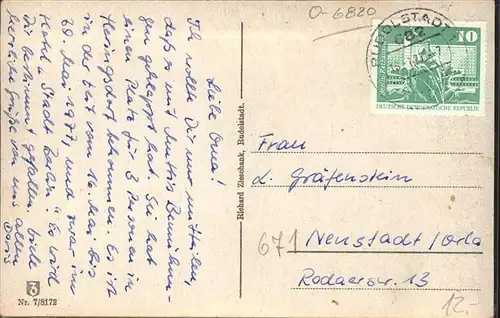 O-6820
RUDOLSTADT
682
10
DEUTSCHE DEMOKRATISCHE REPUBLIK
Liebe Oma!
Ich wollte Dir nur mitteilen,
daß es mit Muttis Bemühun-
gen geklappt hat. Sie hat
einen Platz für 3 Personen in
Heringsdorf bekommen. Es ist
in der Zeit vom 16. Mai bis
28. Mai 1977, und zwar im
Hotel „Stadt Berlin“. Es wird
Dir bestimmt gefallen. Viele
herzliche Grüße von uns allen
Doris
Nr. 7/8172
Richard Zieschank, Rudolstadt.
Frau
L. Gräfenstein
671 Neustadt/Orla
Rodaerstr. 13
12.-